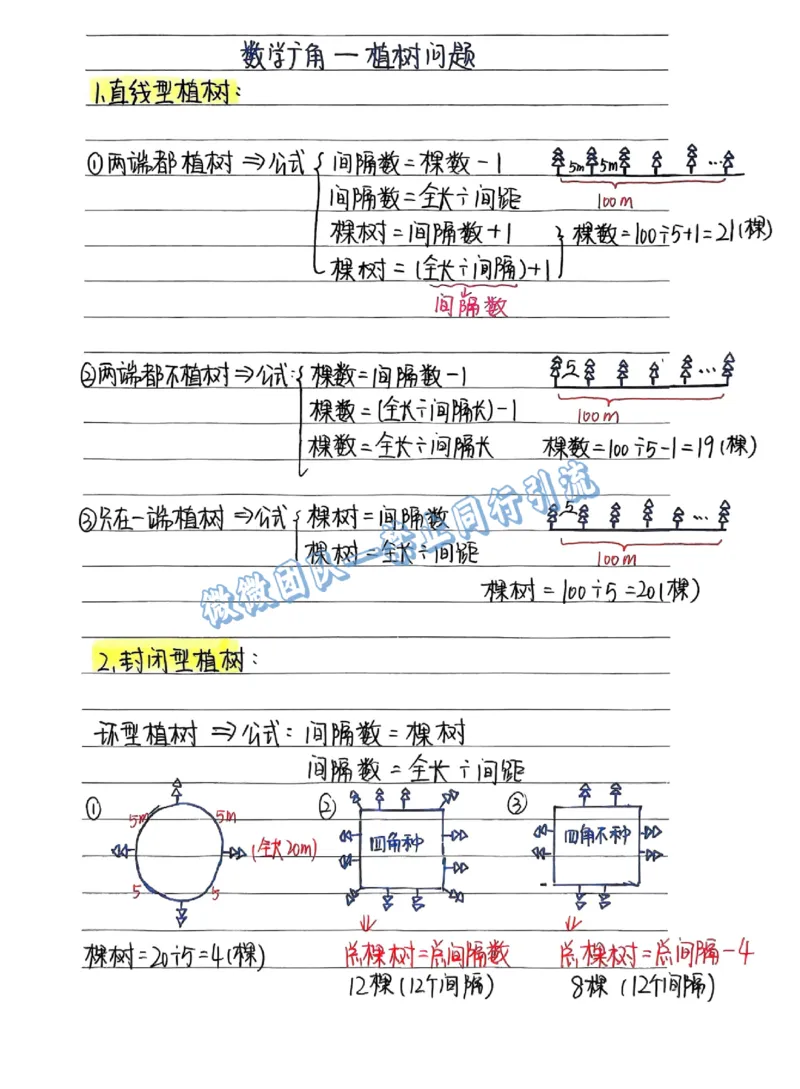 数学广角 — 植树问题
1.直线型植树:
①两端都植树 ⇒公式 { 间隔数=棵数-1
5m 5m ...
间隔数=全长÷间距
100m
棵树=间隔数+1
棵数=100÷5+1=21(棵)
棵树=(全长÷间隔)+1
间隔数
②两端都不植树⇒公式:{ 棵数=间隔数-1
5 ...
棵数=(全长÷间隔长)-1
100m
棵数=全长÷间隔长
棵数=100÷5-1=19(棵)
③只在一端植树 ⇒公式 { 棵树=间隔数
5 ...
棵树=全长÷间距
100m
棵树=100÷5=20(棵)
微微团队一举止同行引流
2.封闭型植树:
环型植树 ⇒公式: 间隔数=棵树
间隔数=全长÷间距
① 5m 5m 5 5 (全长20m)
② 四角种
③ 四角不种
棵树=20÷5=4(棵)
总棵树=总间隔数
总棵树=总间隔-4
12棵(12个间隔)
8棵(12个间隔)